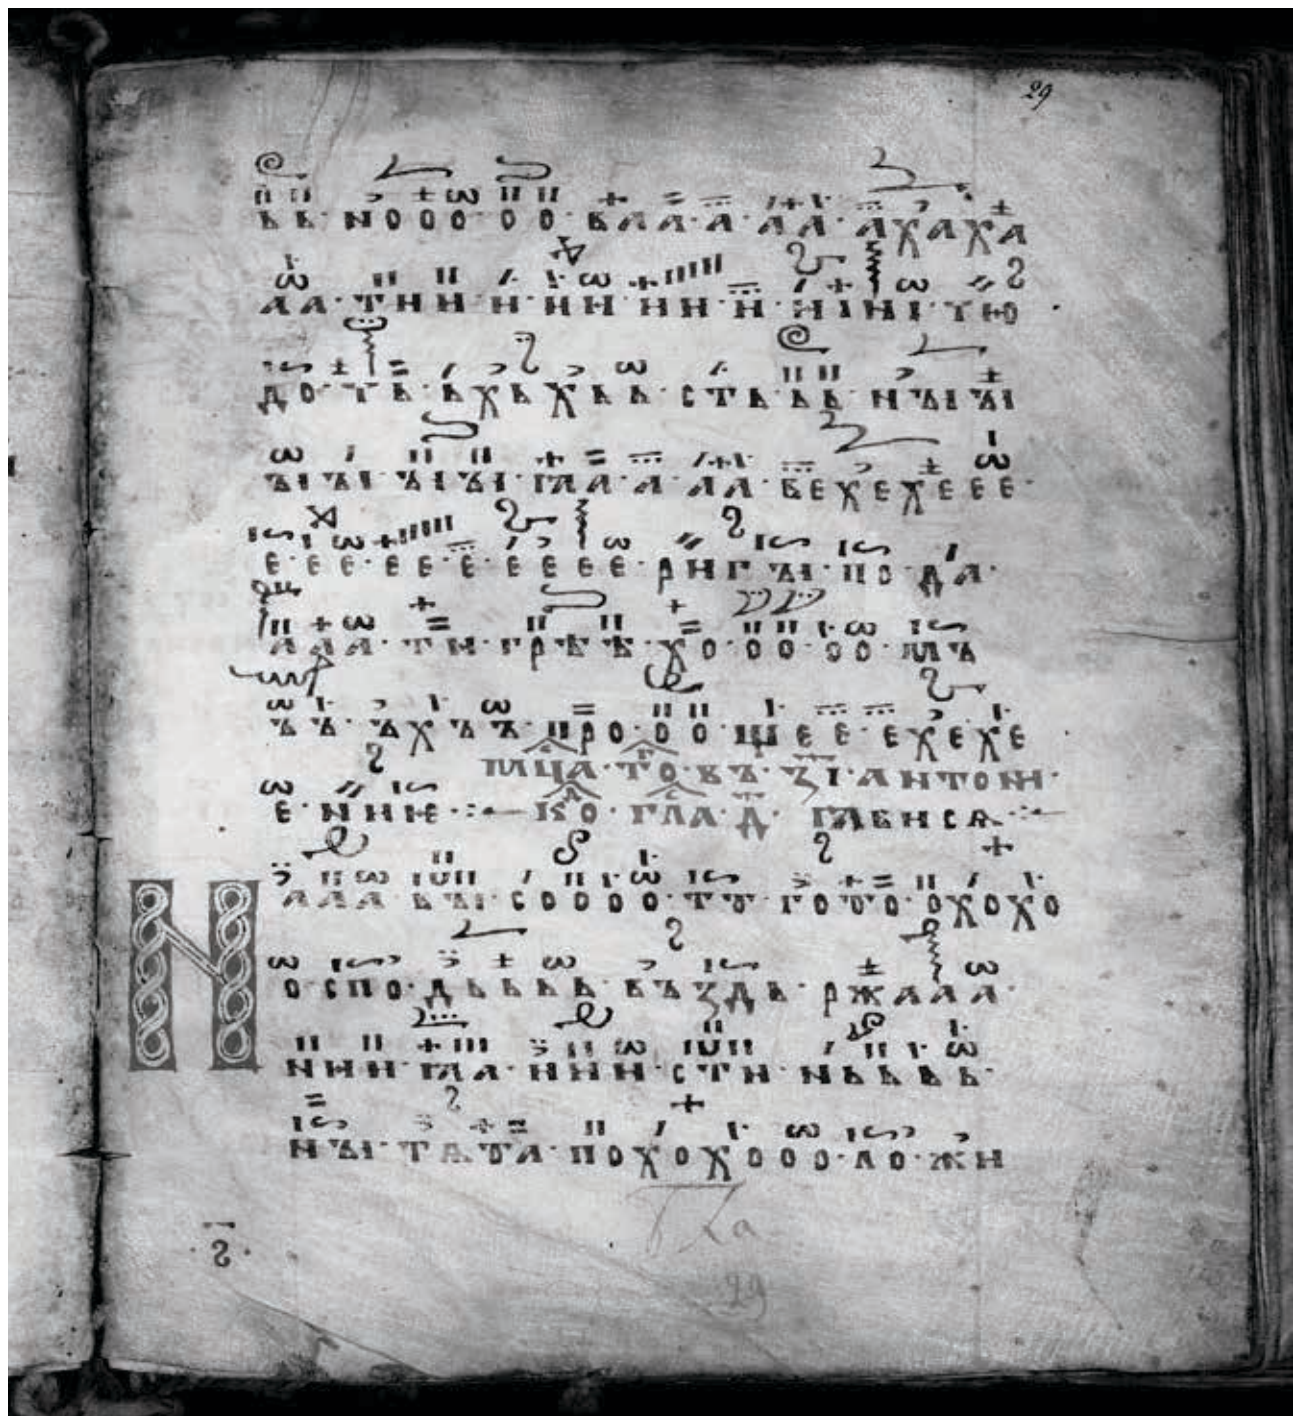 29
ЬЬ·NOOO·OO·БЛАА·А·АА·АХАХА
АА·ТНН·Н·НН·НН·Н·НІНІ·ТЮ
ДО·ТЬ·ЬХЬХЬЬ·СТЬ·ЬЬ·НЪІЪІ
ЪІЪІ·ЪІЪІ·ГЛА·А·АА·БЕХЕХЕЕЕ·
Е·ЕЕЕ·ЕЕ·Е·ЕЕЕЕ·РНГЪІ·ПО·ДА·
ААА·ТН·ГРѢѢ·ХО·ОО·ОО·МЪ
ЪЪ·ЪХЪЪ·ПРО·ОО·ШЕЕ·ЕХЕХЕ
МЦА·ТО·ВЪ·ЗІ·АНТОН·
Е·ННЮ·КО·ГЛА·Д·ГАВИСѦ·
ААА·ВЪІ·СОООО·ТЪ·ГОСО·ОХОХО
О·СПО·ДЬЬЬЬ·ВЪЗДЬ·РЖААА·
ННН·ГЛА·ННН·СТН·НЬЬЬЬ·
НЪІ·ТАТА·ПОХОХООО·ЛО·ЖН
29